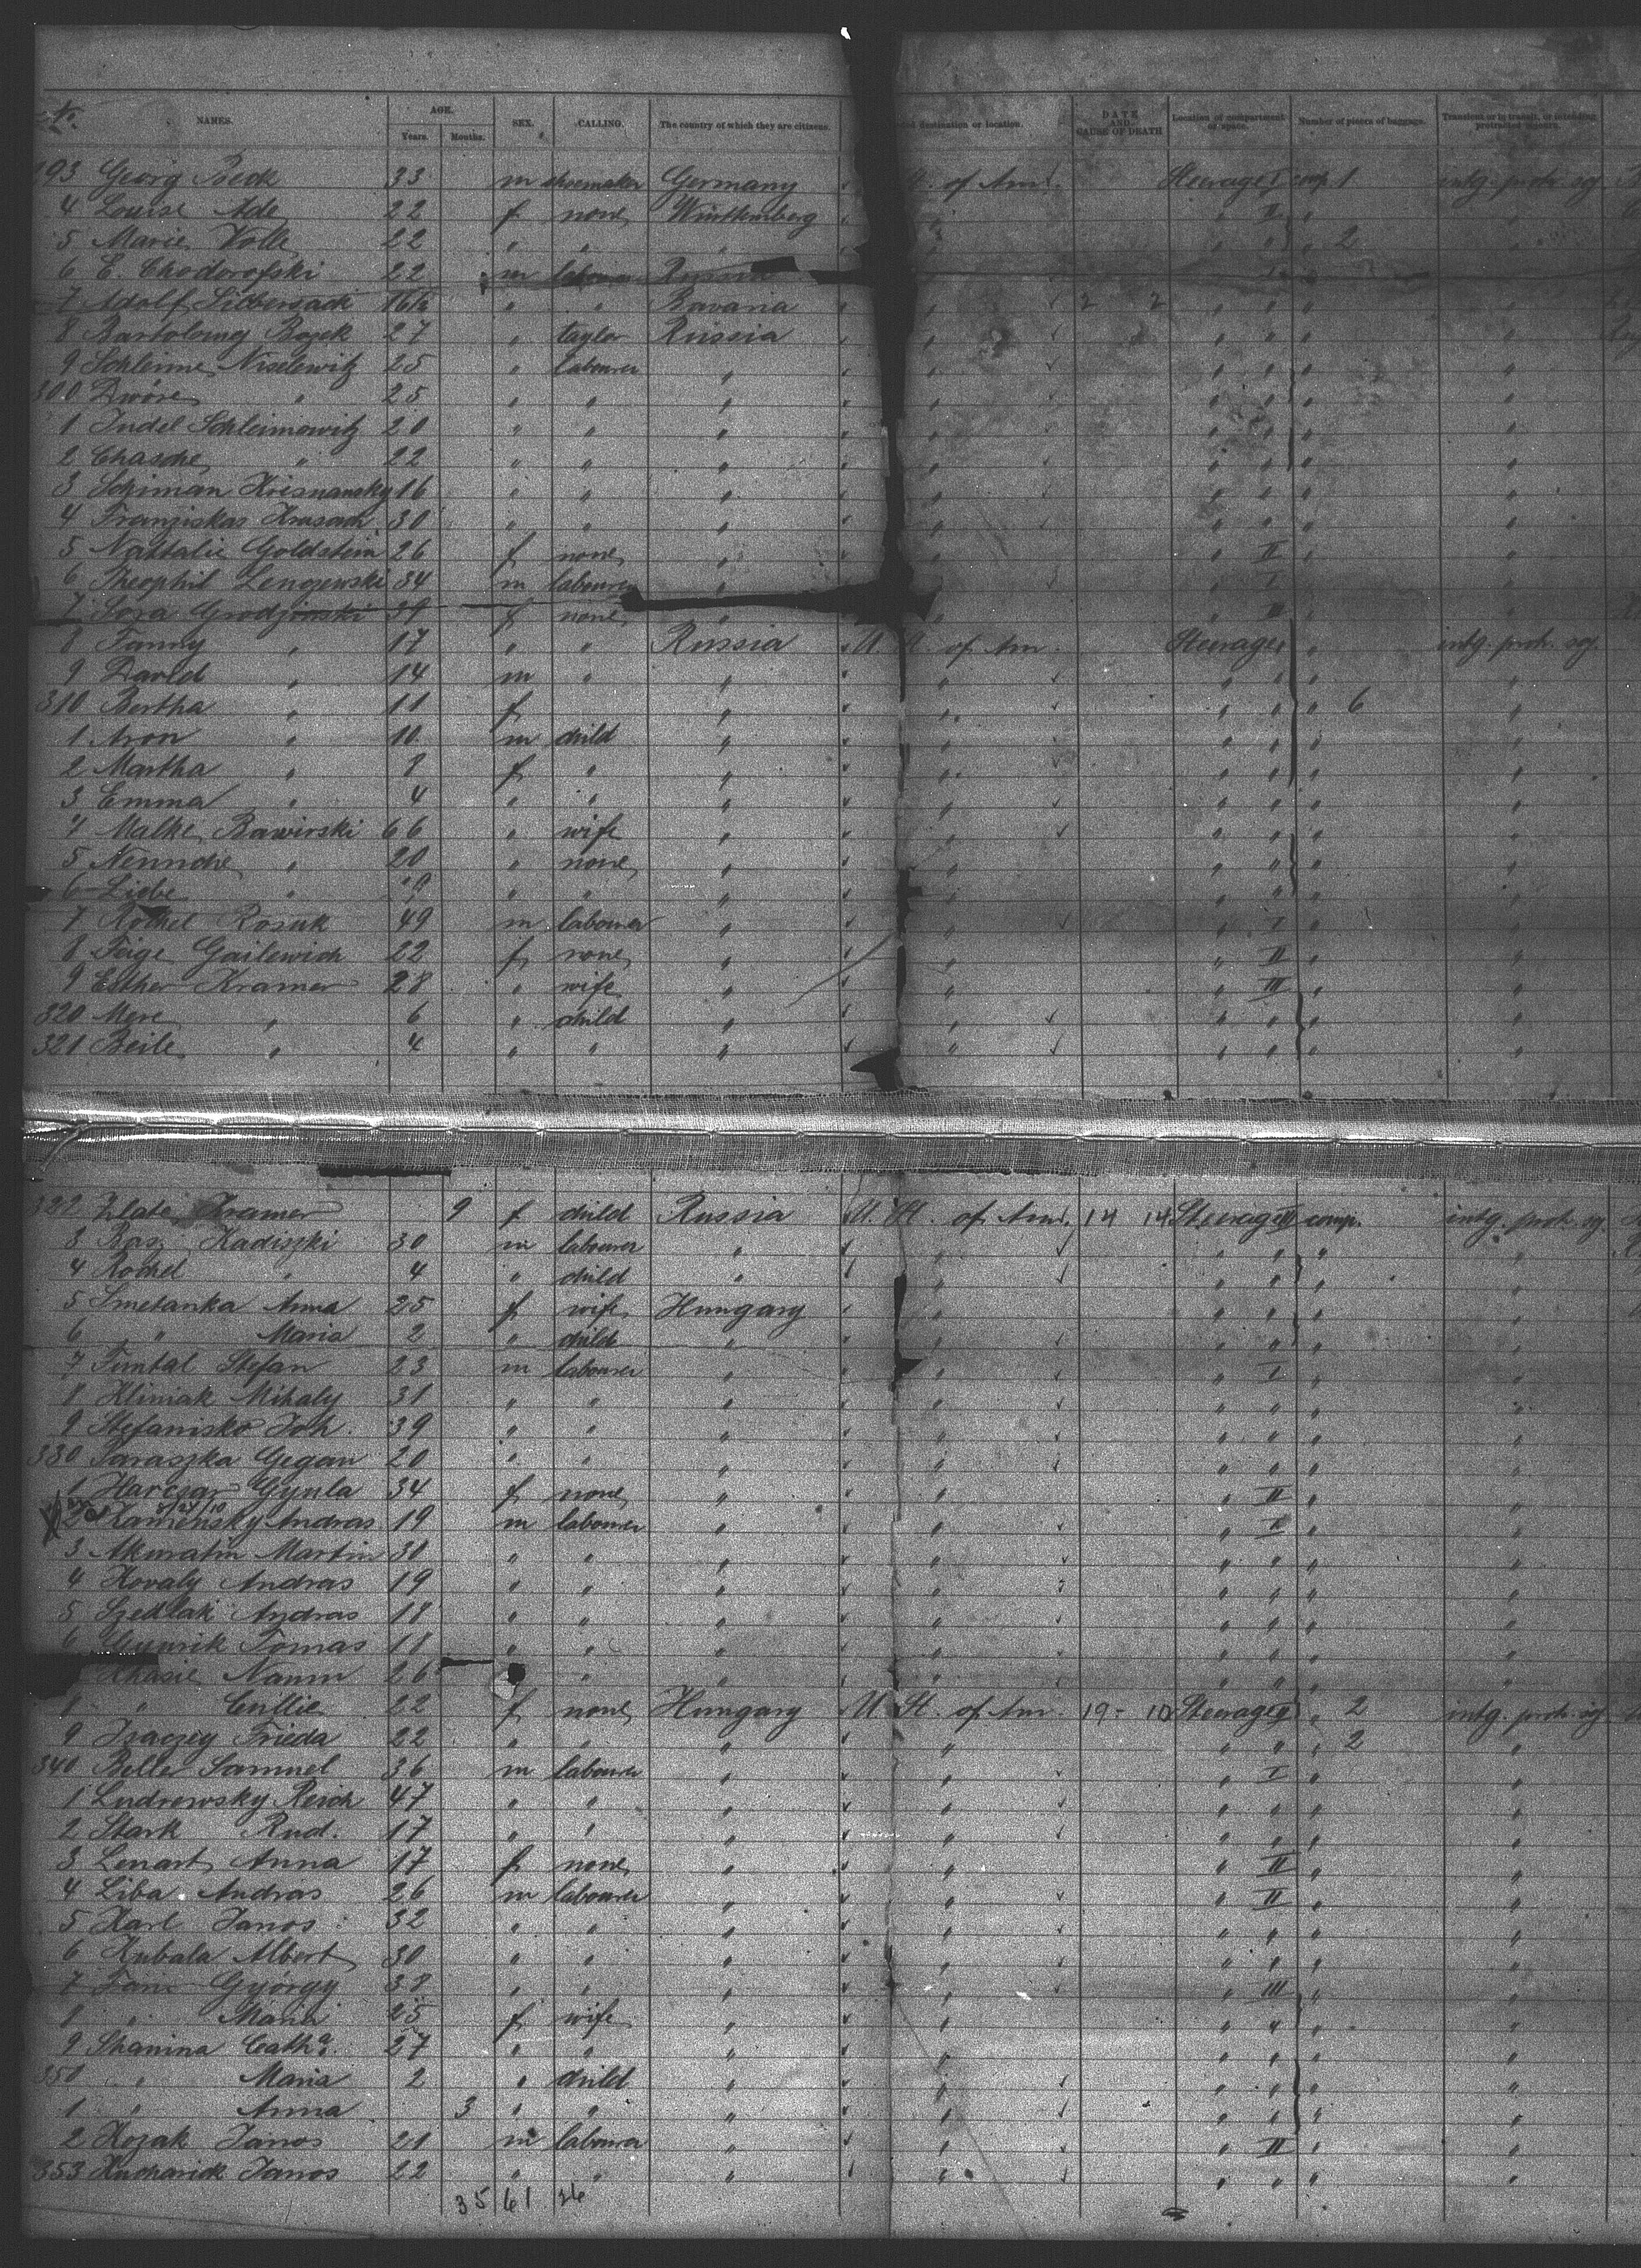 No. NAMES. AGE. Years. Months. SEX. CALLING. The country of which they are citizens. destination or location. DATE AND CAUSE OF DEATH Location of compartment of space. Number of pieces of luggage. Transient or in transit, or intending protracted sojourn.
193 Georg Beck 33 m shoemaker Germany St. of Am. Steerage I comp. 1 intg. protr. soj.
4 Louise Ade 22 f none Württemberg " II "
5 Marie Volle 22 " " " " " " 2 "
6 E. Chodorofski 22 m labourer Russia " I "
7 Adolf Silbersack 16 1/2 " " Bavaria " 2 2 " " " "
8 Bartolomey 27 " taylor Russia " " " " "
9 Schleime Niselewitz 25 " labourer " " " " " "
300 Dwore " 25 " " " " " " " "
1 Judel Schleimowitz 20 " " " " " " " "
2 Chasche " 22 " " " " " " " "
3 Schiman Krisnansky 16 " " " " " " " "
4 Franziskas 30 " " " " " " " "
5 Nathalie Goldstein 26 f none " " " II " "
6 Theophil Lengewski 34 m labourer " " " I " "
7 Sora Grodzinski f none " " " III " "
8 Fanny " 17 " " Russia U. St. of Am. Steerage " " intg. protr. soj.
9 David " 14 m " " " " " " "
310 Bertha " 11 f " " " " " 6 "
1 Aron " 10 m child " " " " " "
2 Martha " 8 f " " " " " " "
3 Emma " 4 " " " " " " " "
4 Malke Bawirski 66 " wife " " " " " "
5 Nennche " 20 " none " " " " " "
6 Liebe " " " " " " " " "
7 Rochel Rosuk 49 m labourer " " " I " "
8 Feige Gailewich 22 f none " " " II " "
9 Esther Kramer 28 " wife " " " III " "
320 Mere " 6 " child " " " " " "
321 Beile " 4 " " " " " " " "
322 Zlate Kramer 9 f child Russia U. St. of Am. 14 14 Steerage III comp. intg. protr. soj.
3 Kadiszki 30 m labourer " " " " " "
4 Rochel " 4 " child " " " " " "
5 Smetanka Anna 25 f wife Hungary " " " " "
6 " Maria 2 " child " " " " " "
7 Funtal Stefan 23 m labourer " " " I " "
8 Kliniak Mihaly 31 " " " " " " " "
9 Stefanisko Joh. 39 " " " " " " " "
330 Taraszka Gegan 20 " " " " " " " "
1 Harczar Gyula 34 f none " " " II " "
2 Kamensky Andras 19 m labourer " " " I " "
3 Akuratin Martin 30 " " " " " " " "
4 Kovaly Andras 19 " " " " " " " "
5 Szedlak Andras 18 " " " " " " " "
6 Tomas 18 " " " " " " " "
Naum 26 " " " " " " "
8 " Cullie 22 f none Hungary U. St. of Am. 19 - 10 Steerage II " 2 intg. protr. soj.
9 Isaczey Frieda 22 " " " " " " " 2 "
340 Beller Samuel 36 m labourer " " " I " "
1 Ludrowsky Reich 47 " " " " " " " "
2 Stark Rud. 17 " " " " " " " "
3 Lenart Anna 17 f none " " " II " "
4 Liba Andras 26 m labourer " " " II " "
5 Karl Janos 32 " " " " " " " "
6 Kubala Albert 30 " " " " " " " "
7 György 38 " " " " " III " "
8 " Maria 25 f wife " " " " " "
9 Shanina Cath. 27 " " " " " " " "
350 " Maria 2 " child " " " " " "
1 " Anna 3 " " " " " " " "
2 Kozak Janos 21 m labourer " " " II " "
353 Kucharick Janos 22 " " " " " " " "
35 61 26